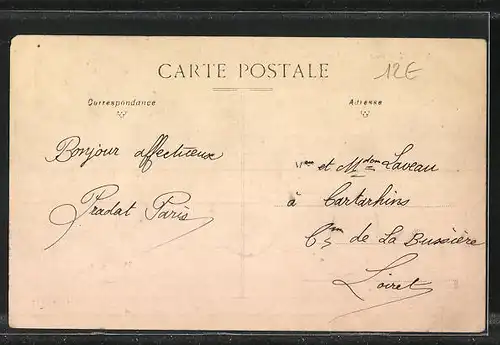 CARTE POSTALE
12E
Correspondance
Adresse
Bonjour affectueux
Pradat Paris
et Mdem Laveau
à Cartarhins
de La Bussière
Loiret